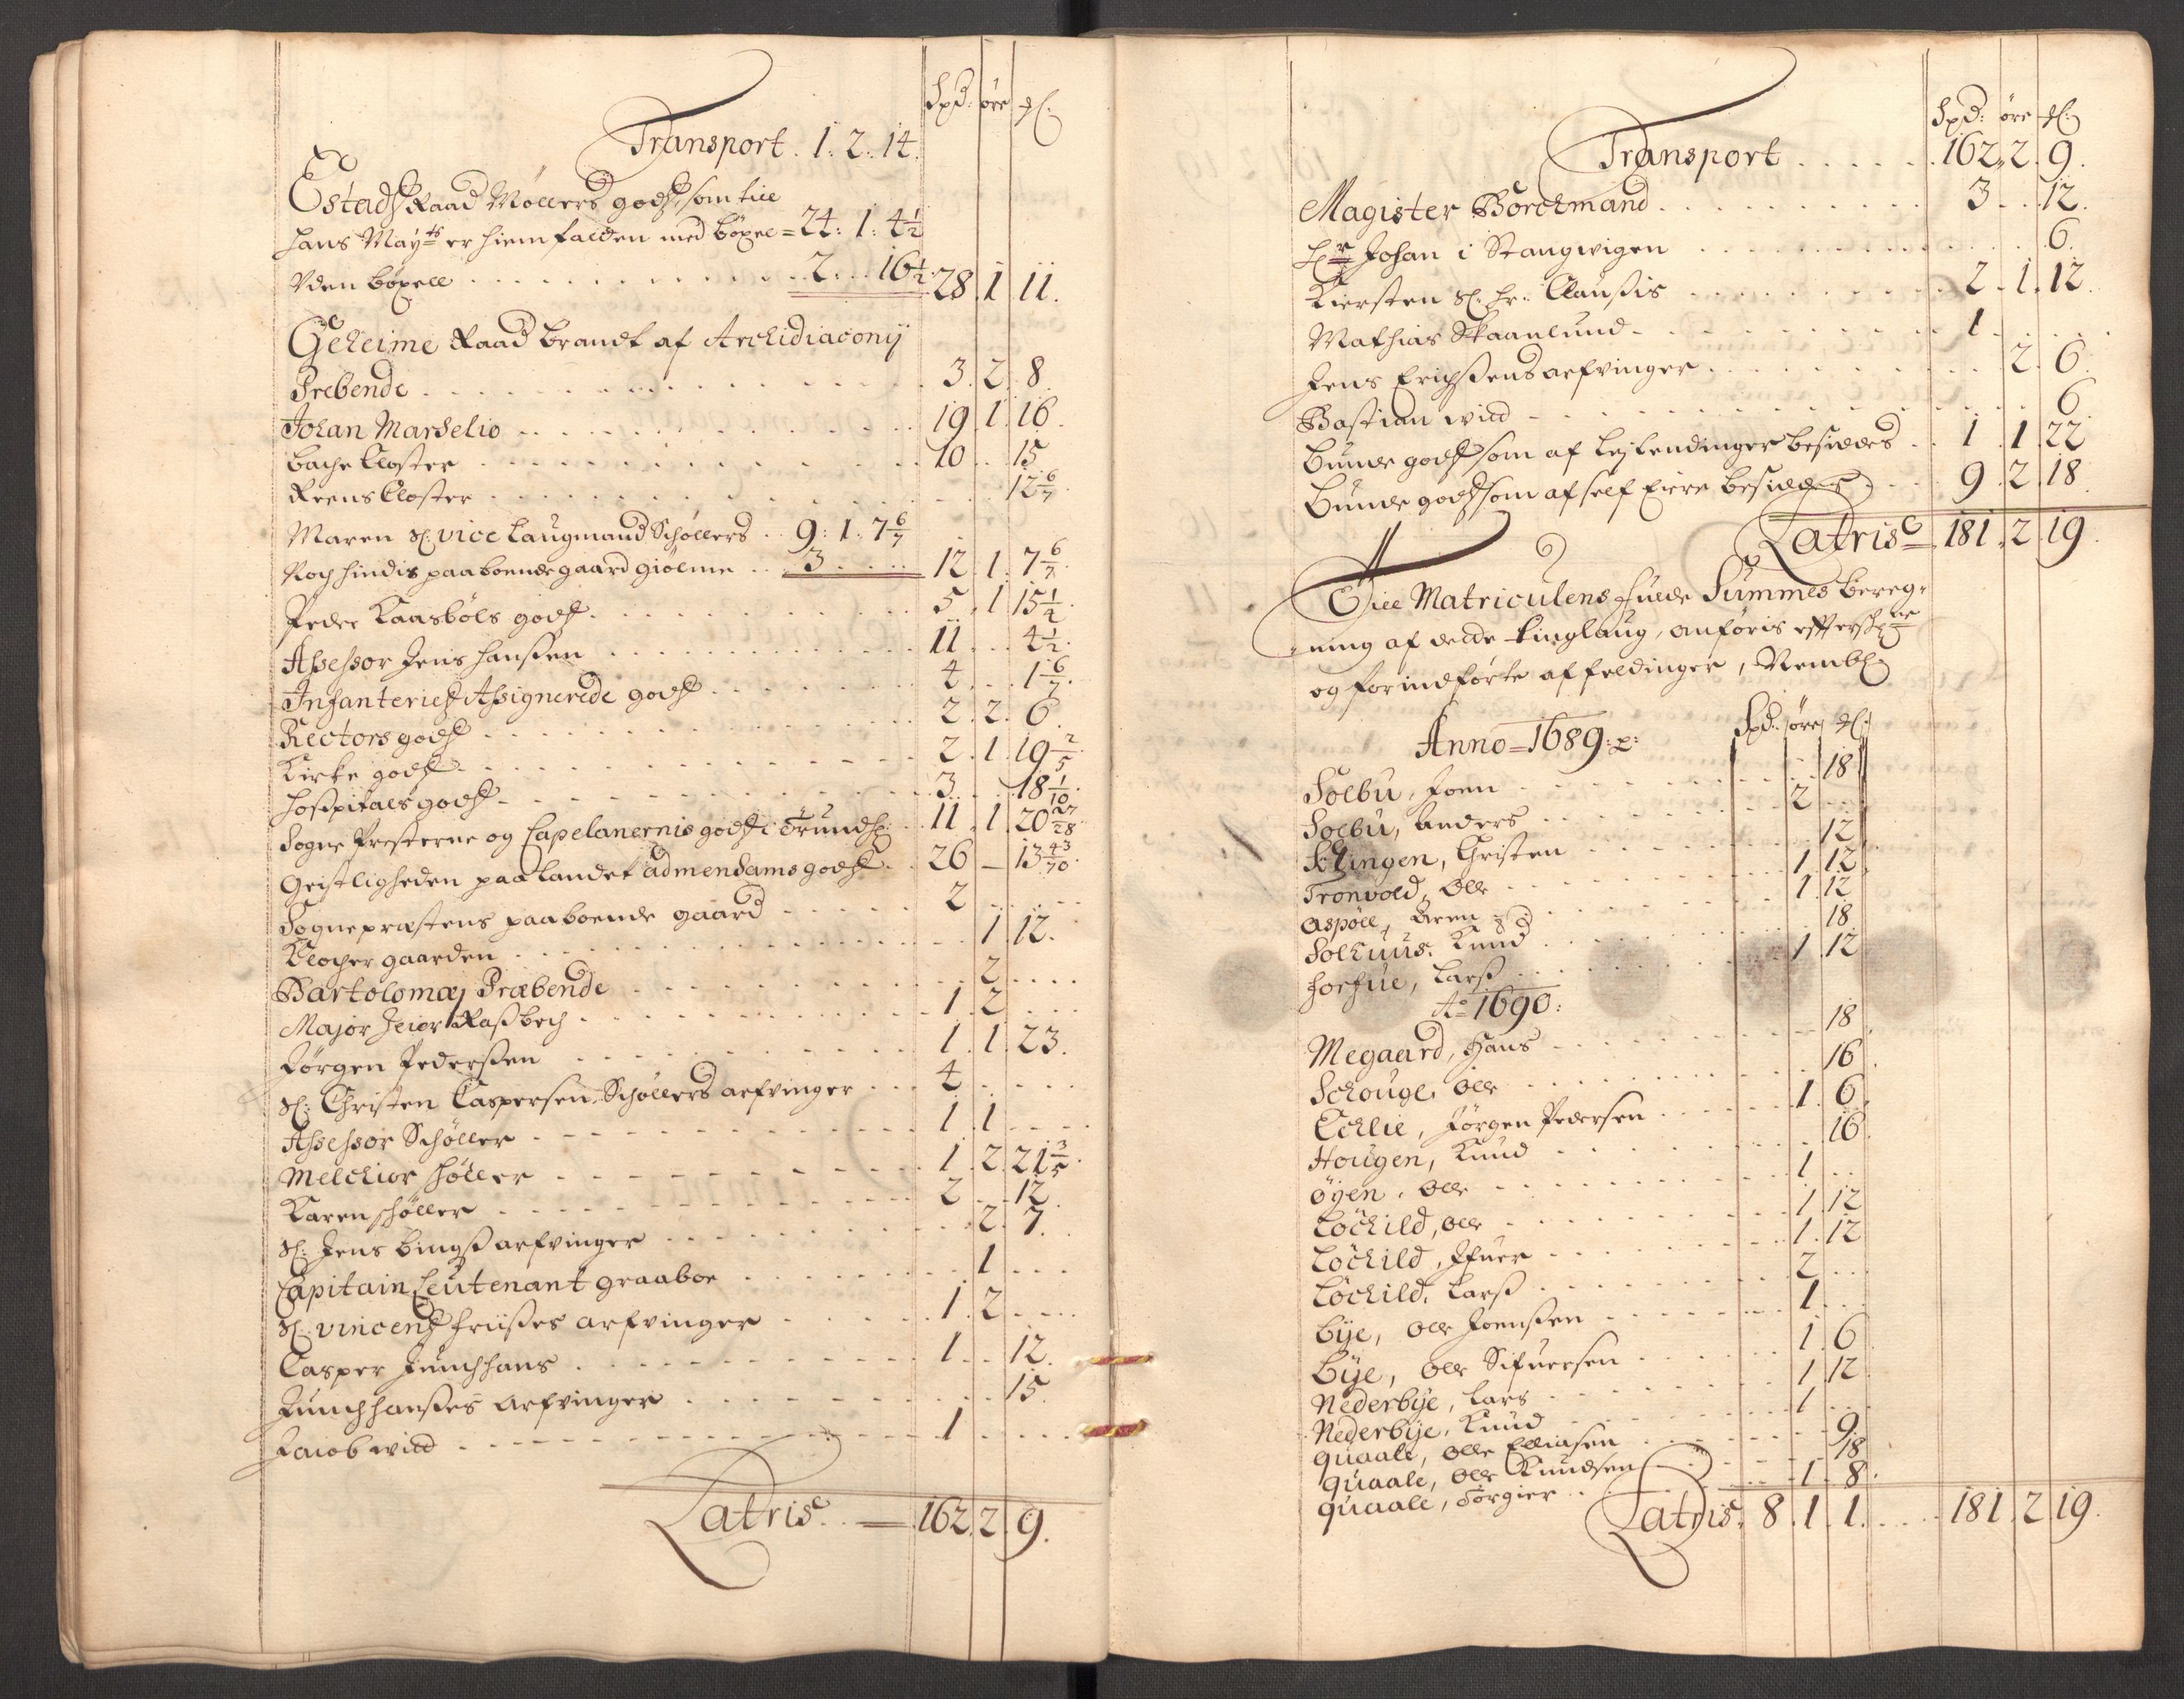 Spd: øre ₰
Transport . 1: 2: 14.
Estads Raad Møllers gods, som till
hans Mayts er hiemfalden med böxel = 24: 1: 4½
Uden böxell . . . 2 . . 16½ 28. 1. 11.
Geheime Raad Brandt af Archidiaconij
Prebende . . . 3. 2. 8.
Johan Marselio . . . 19. 1. 16.
Bache Closter . . . 10 . . 15
Reens Closter . . . 12 6/7
Maren Sl: vice Laugmand Schøllers . . 9: 1. 7 6/7
Noch hindis paaboende gaard giölme . . 3 . . . 12. 1. 7 6/7
Peder Kaasböls gods . . . 5. 1. 15 1/4
Assessor Jens Hanssen . . . 11 . . 4 1/2
Infanteriets Assignerede gods . . . 4 . . 1 6/7
Rectors gods . . . 2. 2. 6.
Kirke gods . . . 2. 1. 19 2/5
Hospitals gods . . . 3 . . 18 1/10
Sogne Presterne og Capelanernis gods i Trundh: . . 11. 1. 20 27/28
Geistligheden paa Landet ad mensams gods . . 26 – 13 43/70
Sognepræstens paaboende gaard . . . 2 . . .
Klocher gaarden . . . 1. 12.
Bartolomæj Præbende . . . 2 . . .
Major Heior Rasbech . . . 1. 2 . . .
Jørgen Pedersen . . . 1. 1. 23.
Sl: Christen Caspersen Schøllers arfvinger . . . 4 . . .
Assessor Schøller . . . 1. 1 . . .
Melchior Høller . . . 1. 2. 21 3/5
Karen Schøller . . . 2 . . 12
Sl: Jens Bings arfvinger . . . 2. 7.
Capitain Leutenant Graaboe . . . 1 . . .
Sl: vincents Friises arfvinger . . . 1. 2 . . .
Casper Junchhans . . . 1 . . 12.
Junchhanses arfvinger . . . 15.
Jacob wild . . . 1 . . .
Latris — 162. 2. 9.
Spd: øre ₰
Transport . . . 162. 2. 9.
Magister Borchmand . . . 3 . . 12.
Hr Johan i Stangwigen . . . 6.
Kiersten Sl: Hr: Claussis . . . 2. 1. 12.
Mathias Skaanlund . . . 1 . . .
Jens Erichsens arfvinger . . . 2. 6.
Bastian wild . . . 6
Bunde gods som af Leylendinger besiddes . . 1. 1. 22
Bunde gods som af self Eiere besiddes . . 9. 2. 18
Latris 181. 2. 19.
Till Matriculens fulde Summes bereg-
ning af dette tinglaug, anføris effterschne
og forindførte affeldinger, Nembl:
Anno = 1689: Spd: øre ₰
Solbu, Joen . . . 18
Solbu, Anders . . . 2 . .
Klingen, Christen . . . 12
Tronvold, Olle . . . 1. 12
Aspöll, . . . 1. 12
Solhuus, Knud . . . 18
Horfue, Lars . . . 1. 12
Ao 1690:
Megaard, Hans . . . 18
Schouge, Olle . . . 16
Echlie, Jørgen Pedersen . . . 1. 6.
Hougen, Knud . . . 16
Öyen, Olle . . . 1 . .
Löchild, Olle . . . 1. 12
Löchild, Ifuer . . . 1. 12
Löchild, Lars . . . 2 . .
Bye, Olle Joenssen . . . 1 . .
Bye, Olle Sifuersen . . . 1. 6
Nederbye, Lars . . . 1. 12
Nederbye, Knud . . . 1 . .
Quaale, Olle Elliasen . . . 9
Quaale, Olle Knudsen . . . 18
Quaale, Törgier . . . 1. 8.
Latris. 8. 1. 1. . . . 181. 2. 19.